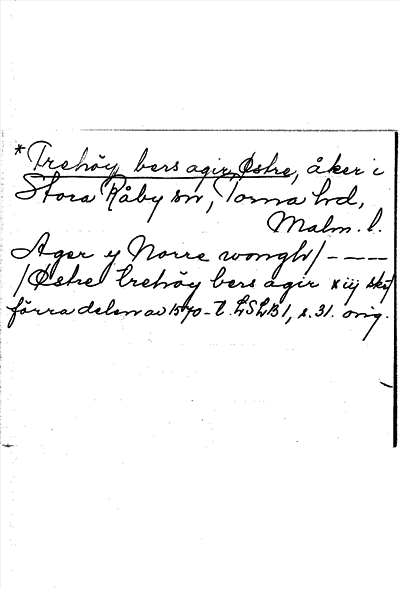 *Trehöy bers agir, Østre, åker i
Stora Råby sn, Torna hd,
Malm. l.
Ager y Norre wongh/ - - - -
/Østre trehöy bers agir x iij skf
förra delen av 1570-t. LSLB1, s. 31. orig.